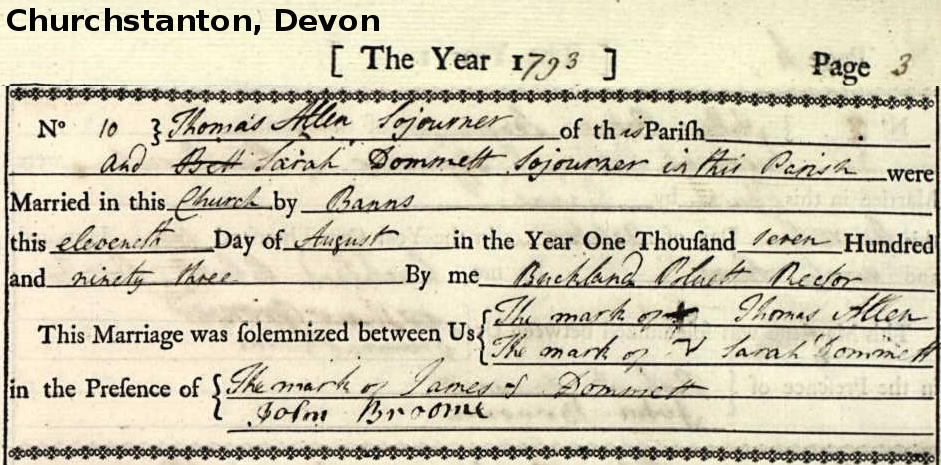 Churchstanton, Devon
[ The Year 1793 ] Page 3
Nº 10 } Thomas Allen Sojourner of this Pariſh
and Bett Sarah Dommett Sojourner in this Parish were
Married in this Church by Banns
this eleveneth Day of August in the Year One Thouſand seven Hundred
and ninety three By me Buckland Bluett Rector
This Marriage was ſolemnized between Us { The mark of + Thomas Allen
The mark of Sarah Dommett
in the Preſence of { The mark of James Dommett
John Broome